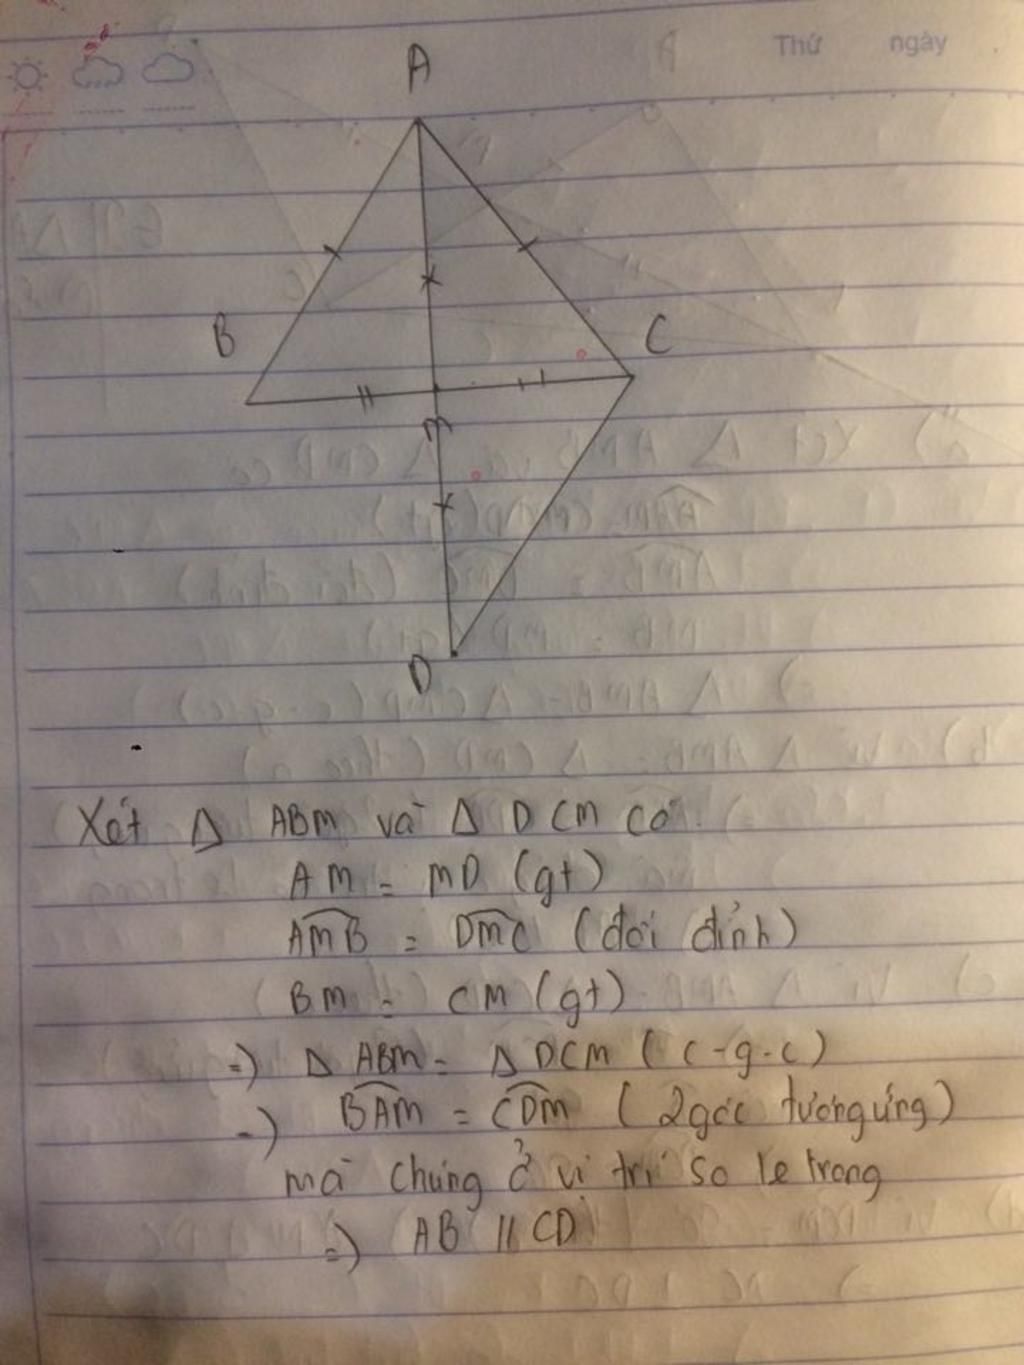 Thứ ngày
A
B
C
m
D
Xét Δ ABM và Δ DCM có:
AM = MD (gt)
AMB = DMC (đối đỉnh)
BM = CM (gt)
=) Δ ABM = Δ DCM (c-g-c)
=) BAM = CDM (2 góc tương ứng)
mà chúng ở vị trí so le trong
=) AB // CD